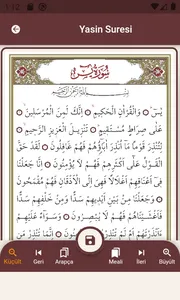 1:12
Yasin Suresi
سُورَةُ يٰسٓ
بِسْمِ اللّٰهِ الرَّحْمٰنِ الرَّحِيمِ
يٰسٓ وَالْقُرْاٰنِ الْحَكِيمِ اِنَّكَ لَمِنَ الْمُرْسَلِينَ
عَلٰى صِرَاطٍ مُسْتَقِيمٍ تَنْزِيلَ الْعَزِيزِ الرَّحِيمِ
لِتُنْذِرَ قَوْمًا مَٓا اُنْذِرَ اٰبَٓاؤُ۬هُمْ فَهُمْ غَافِلُونَ لَقَدْ حَقَّ
الْقَوْلُ عَلٰٓى اَكْثَرِهِمْ فَهُمْ لَا يُؤْمِنُونَ اِنَّا جَعَلْنَا
فَٓي اَعْنَاقِهِمْ اَغْلَالًا فَهِيَ اِلَى الْاَذْقَانِ فَهُمْ مُقْمَحُونَ
وَجَعَلْنَا مِنْ بَيْنِ اَيْدِيهِمْ سَدًّا وَمِنْ خَلْفِهِمْ سَدًّا
فَاَغْشَيْنَاهُمْ فَهُمْ لَا يُبْصِرُونَ وَسَوَٓاءٌ عَلَيْهِمْ
Küçült Geri Arapça Meali İleri Büyült